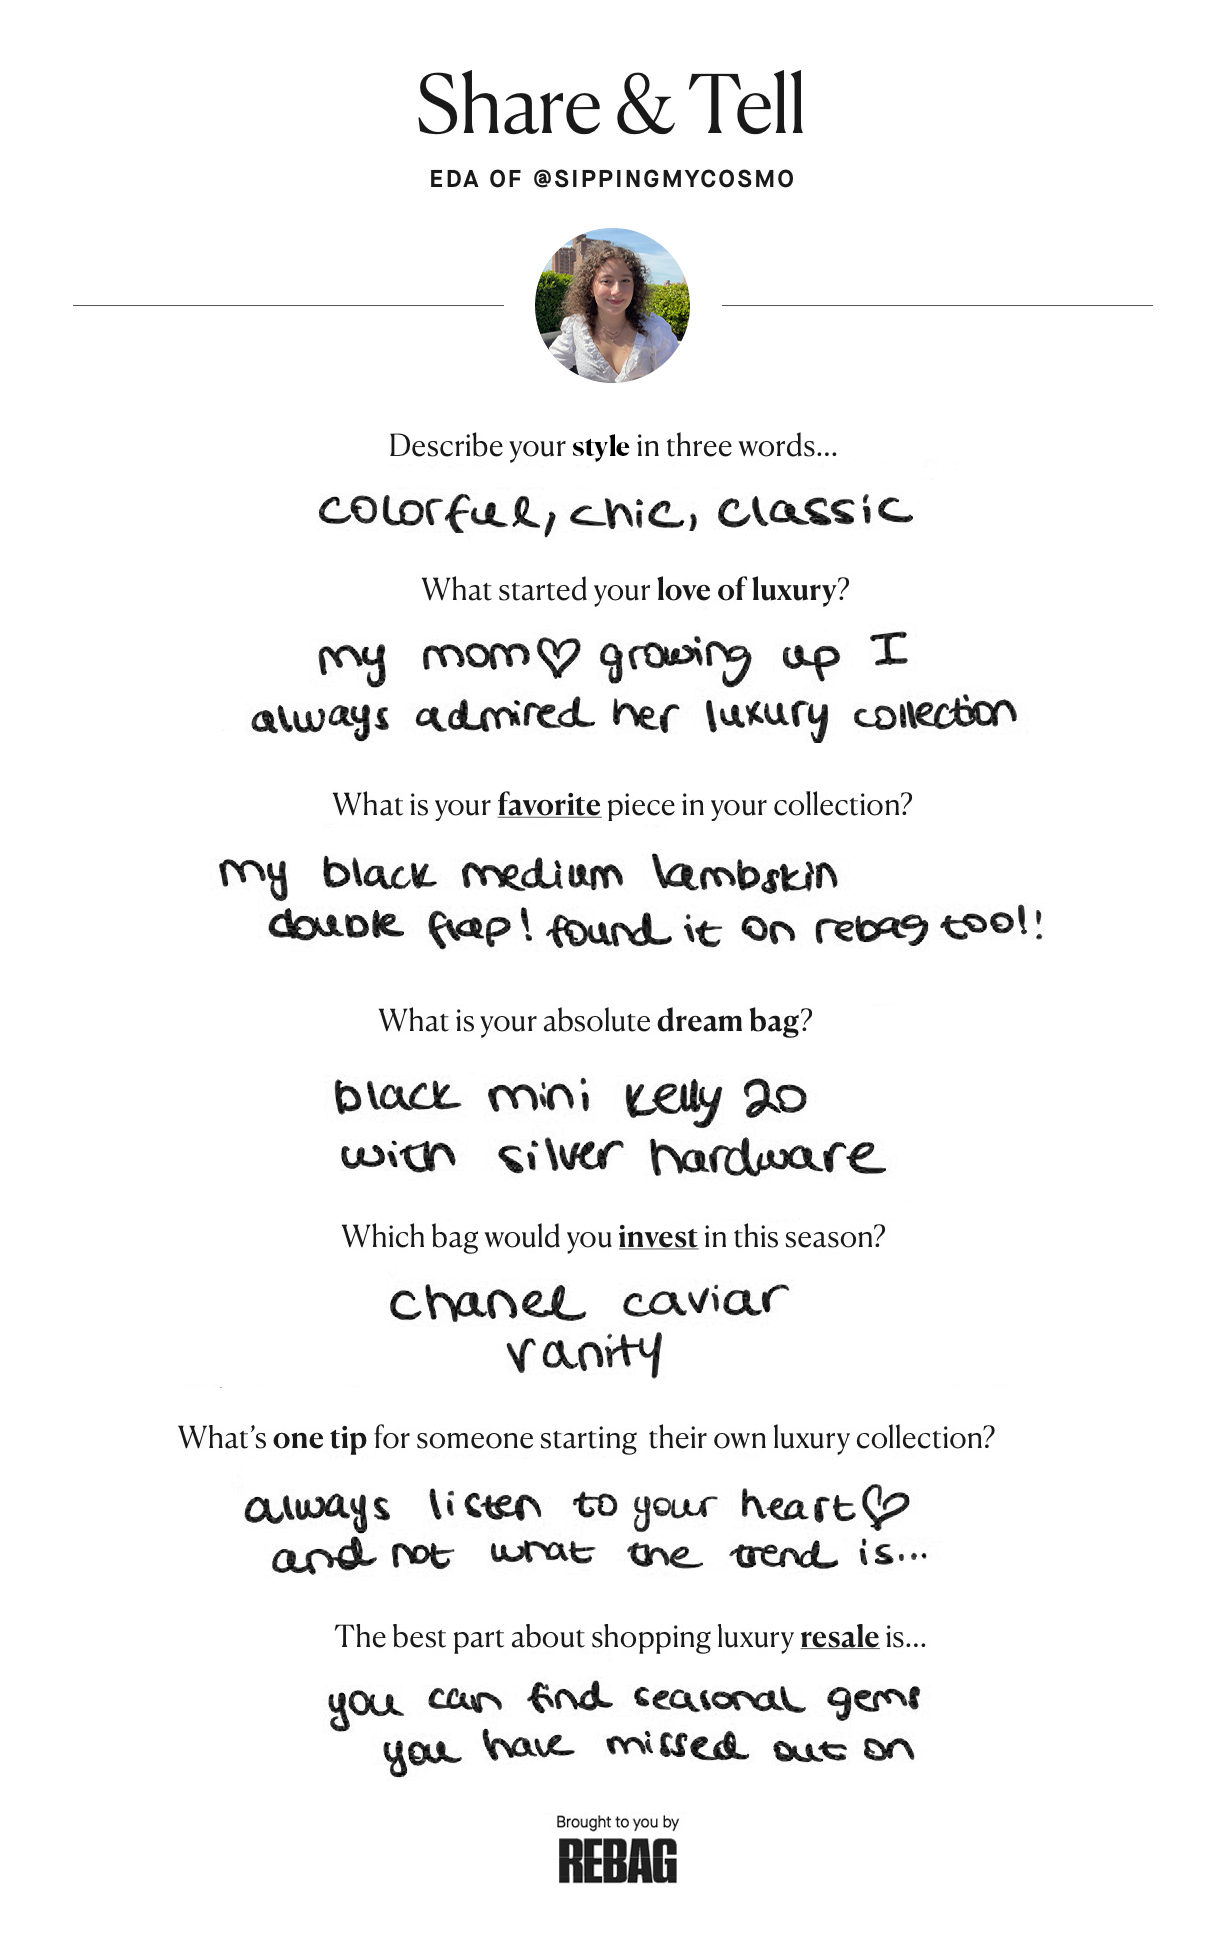 Share & Tell
EDA OF @SIPPINGMYCOSMO
Describe your style in three words...
colorful, chic, classic
What started your love of luxury?
my mom♡ growing up I
always admired her luxury collection
What is your favorite piece in your collection?
my black medium lambskin
double flap! found it on rebag too!!
What is your absolute dream bag?
black mini kelly 20
with silver hardware
Which bag would you invest in this season?
chanel caviar
vanity
What's one tip for someone starting their own luxury collection?
always listen to your heart♡
and not what the trend is...
The best part about shopping luxury resale is...
you can find seasonal gems
you have missed out on
Brought to you by
REBAG